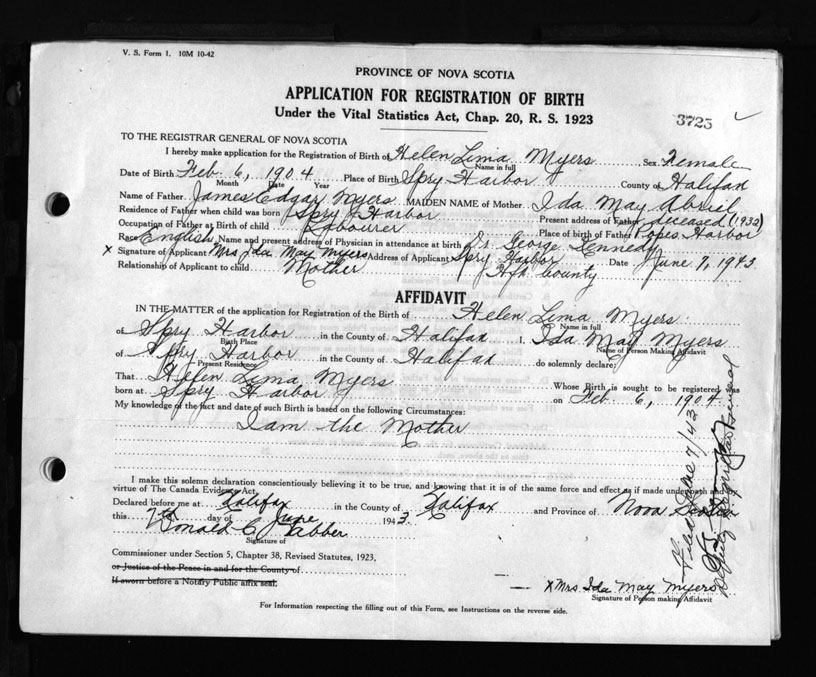 V. S. Form 1. 10M 10-42
PROVINCE OF NOVA SCOTIA
APPLICATION FOR REGISTRATION OF BIRTH
Under the Vital Statistics Act, Chap. 20, R. S. 1923
3725
TO THE REGISTRAR GENERAL OF NOVA SCOTIA
I hereby make application for the Registration of Birth of Helen Lima Myers Sex Female
Name in full
Date of Birth Feb. 6, 1904 Place of Birth Spry Harbor County of Halifax
Month Date Year
Name of Father James Edgar Myers MAIDEN NAME of Mother Ida May
Residence of Father when child was born Spry Harbor Present address of Father deceased (1932)
Occupation of Father at Birth of child Labourer Place of birth of Father Popes Harbor
Race English Name and present address of Physician in attendance at birth Dr. George Kennedy
x Signature of Applicant Mrs Ida May Myers Address of Applicant Spry Harbor Date June 7, 1943
Relationship of Applicant to child Mother Hfx County
AFFIDAVIT
IN THE MATTER of the application for Registration of the Birth of Helen Lima Myers
Name in full
of Spry Harbor in the County of Halifax I, Ida May Myers
Birth Place Name of Person Making Affidavit
of Spry Harbor in the County of Halifax do solemnly declare;
Present Residence
That Helen Lima Myers Whose Birth is sought to be registered was
born at Spry Harbor on Feb 6, 1904.
My knowledge of the fact and date of such Birth is based on the following Circumstances:
I am the Mother
I make this solemn declaration conscientiously believing it to be true, and knowing that it is of the same force and effect as if made under oath and by
virtue of The Canada Evidence Act.
Declared before me at Halifax in the County of Halifax and Province of Nova Scotia
this 7th day of June 1943.
Donald C
Signature of
Commissioner under Section 5, Chapter 38, Revised Statutes, 1923,
or Justice of the Peace in and for the County of
If sworn before a Notary Public affix seal.
x Mrs Ida May Myers
Signature of Person making Affidavit
For Information respecting the filling out of this Form, see Instructions on the reverse side.
Filed June 7/43
Deputy Registrar General